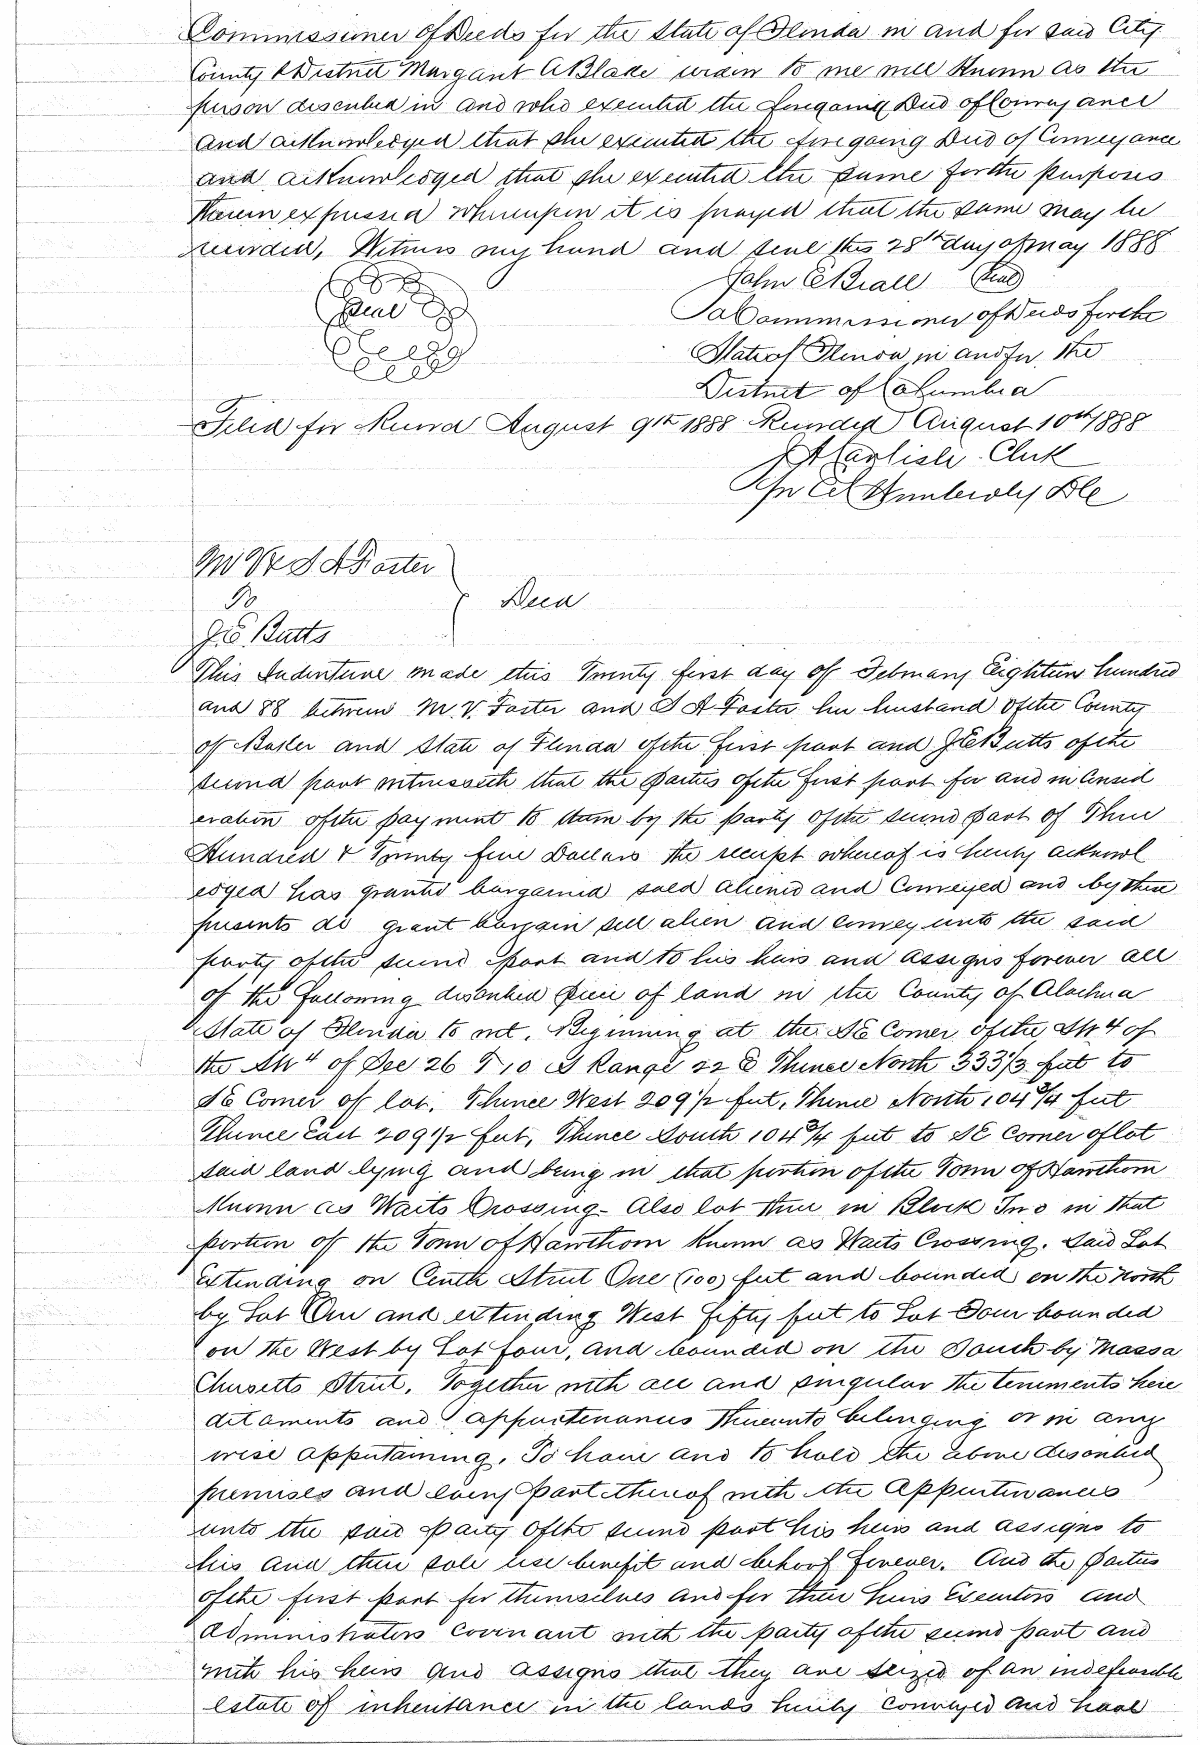 Commissioner of Deeds for the State of Florida in and for said City
County & District Margaret A Blake widow to me well Known as the
person described in and who executed the foregoing Deed of Conveyance
and acknowledged that she executed the foregoing Deed of Conveyance
and acknowledged that she executed the same for the purposes
therein expressed whereupon it is prayed that the same may be
recorded, Witness my hand and seal this 28th day of may 1888
John E Beall Seal
Seal
a Commissioner of Deeds for the
State of Florida in and for the
District of Columbia
Filed for Record August 9th 1888 Recorded August 10th 1888
J A Carlisle Clerk
Per
M V & S A Foster
To
Deed
J E Butts
This Indenture made this Twenty first day of February Eighteen hundred
and 88 between M. V. Foster and S A Foster her husband of the County
of Baker and State of Florida of the first part and J E Butts of the
second part witnesseth that the parties of the first part for and in Consid
eration of the payment to them by the party of the second part of Three
Hundred & Twenty five Dollars the receipt whereof is hereby acknowl
edged has granted bargained sold aliened and Conveyed and by these
presents do grant bargain sell alien and convey unto the said
party of the second part and to his heirs and assigns forever all
of the following described piece of land in the County of Alachua
State of Florida to wit. Beginning at the SE Corner of the SW 4 of
the SW 4 of Sec 26 T 10 S Range 22 E Thence North 333 1/3 feet to
SE Corner of lot. Thence West 209 1/2 feet, Thence North 104 3/4 feet
Thence East 209 1/2 feet, Thence South 104 3/4 feet to SE Corner of lot
said land lying and being in that portion of the Town of Hawthorn
Known as Waits Crossing- Also lot three in Block Two in that
portion of the Town of Hawthorn Known as Waits Crossing. Said Lot
extending on Street One (100) feet and bounded on the North
by Lot One and extending West fifty feet to Lot Four bounded
on the West by Lot four, and bounded on the South by Massa
Chusetts Street. Together with all and singular the tenements here
ditaments and appurtenances thereunto belonging or in any
wise appertaining. To have and to hold the above described
premises and every part thereof with the Appurtenances
unto the said party of the second part his heirs and assigns to
his and their sole use benefit and behoof forever. And the parties
of the first part for themselves and for their heirs Executors and
administrators Covenant with the party of the second part and
with his heirs and assigns that they are seized of an indefeasible
estate of inheritance in the lands hereby conveyed and have